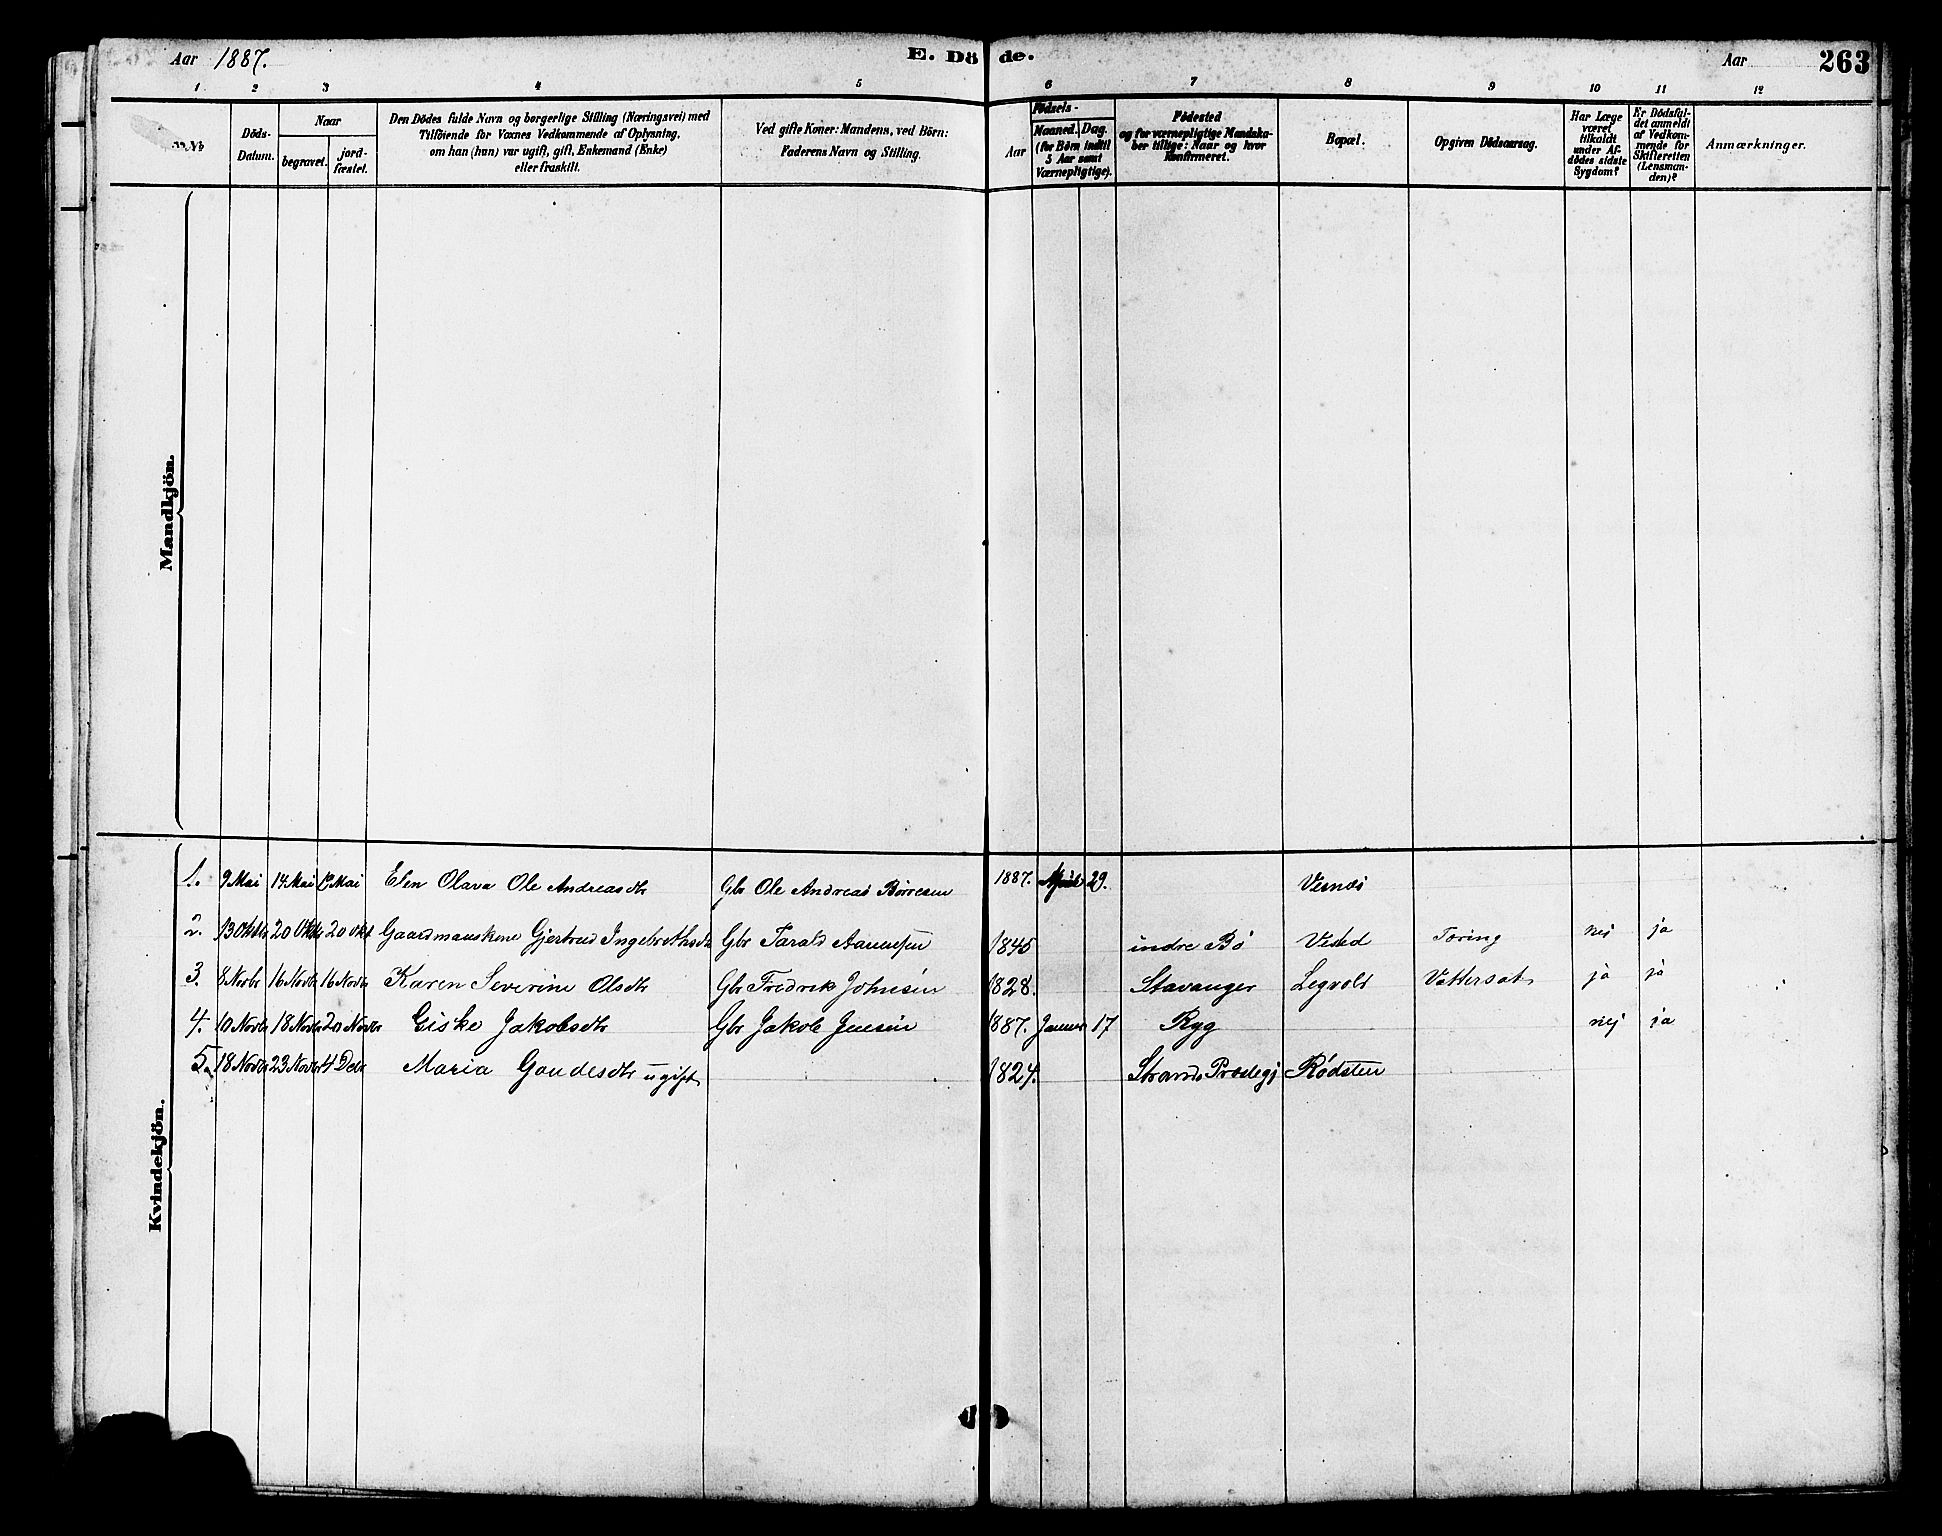 Aar 1887. E. Döde. Aar 263
1 2 3 4 5 6 7 8 9 10 11 12
No
Döds-Datum.
Naar
begravet.
jord-fæstet.
Den Dödes fulde Navn og borgerlige Stilling (Næringsvei) med
Tilföiende for Voxnes Vedkommende af Oplysning,
om han (hun) var ugift, gift, Enkemand (Enke)
eller fraskilt.
Ved gifte Koner: Mandens, ved Börn:
Faderens Navn og Stilling.
Födsels-
Aar
Maaned. Dag.
(for Börn indtil
5 Aar samt
Værnepligtige).
Födested
og for værnepligtige Mandska-
ber tillige: Naar og hvor
Konfirmeret.
Bopæl.
Opgiven Dödsaarsag.
Har Læge
været
tilkaldt
under Af-
dödes sidste
Sygdom?
Er Dödsfal-
det anmeldt
af Vedkom-
mende for
Skifteretten
(Lensman-
den)?
Anmærkninger.
Mandkjön.
Kvindekjön.
1. 9 Mai 14 Mai Mai Elen Olava Ole Andreasdtr Gbr Ole Andreas Börresen 1887. April 29. Vesnæs
2. 13 Oktbr 20 Oktbr 20 Okt Gaardmandskone Gjertrud Ingebrethsdtr Gbr Tarald Aanensen 1845 indre Bö Vested Tæring nej ja
3. 8 Novbr 16 Novbr 16 Novbr Karen Severine Olsdtr Gbr Fredrik Johnsen 1828. Stavanger Legvolt Vattersot ja ja
4. 10 Novbr 18 Novbr 20 Novbr Giske Jakobsdtr Gbr Jakob Jensen 1887. Januar 17 Ryg nej ja
5. 18 Novbr 23 Novbr 4 Debr Maria Gaudesdtr ugift 1824. Strands Præstegj Rödsten